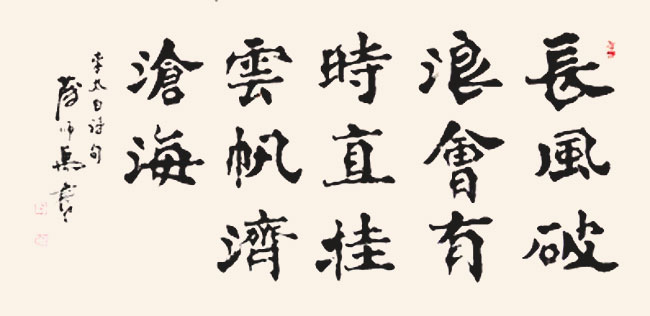 長風破
浪會有
時直挂
雲帆濟
滄海
李太白诗句